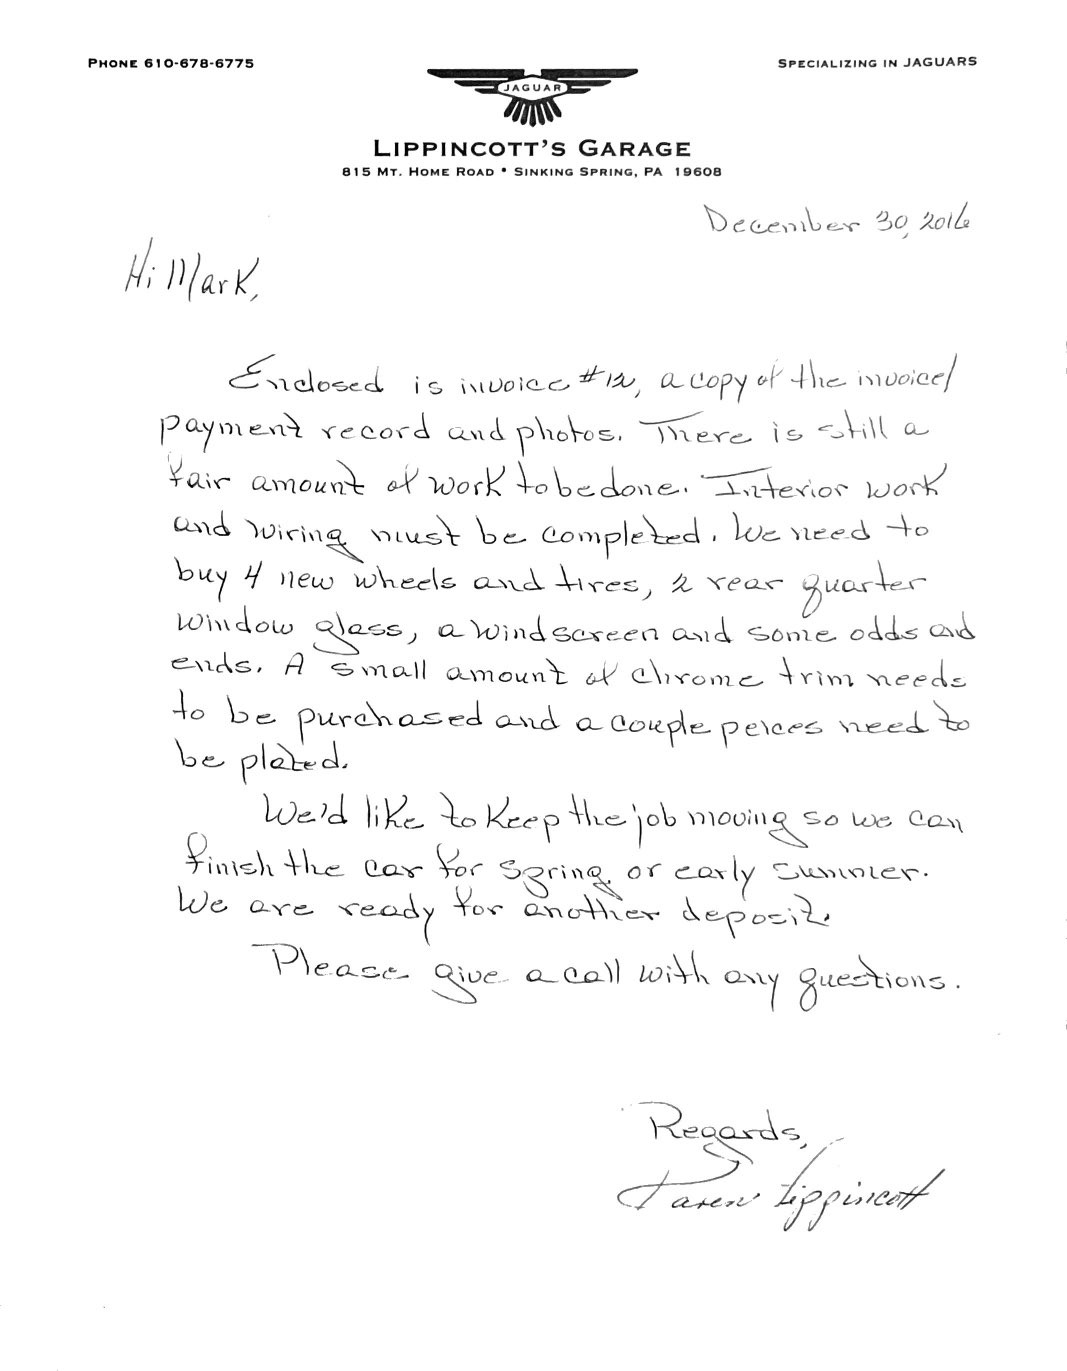 PHONE 610-678-6775
SPECIALIZING IN JAGUARS
JAGUAR
LIPPINCOTT'S GARAGE
815 MT. HOME ROAD • SINKING SPRING, PA 19608
December 30, 2016
Hi Mark,
Enclosed is invoice #12, a copy of the invoice/
payment record and photos. There is still a
fair amount of work to be done. Interior work
and wiring must be completed. We need to
buy 4 new wheels and tires, 2 rear quarter
window glass, a windscreen and some odds and
ends. A small amount of chrome trim needs
to be purchased and a couple peices need to
be plated.
We'd like to keep the job moving so we can
finish the car for spring or early summer.
We are ready for another deposit.
Please give a call with any questions.
Regards,
Karen Lippincott